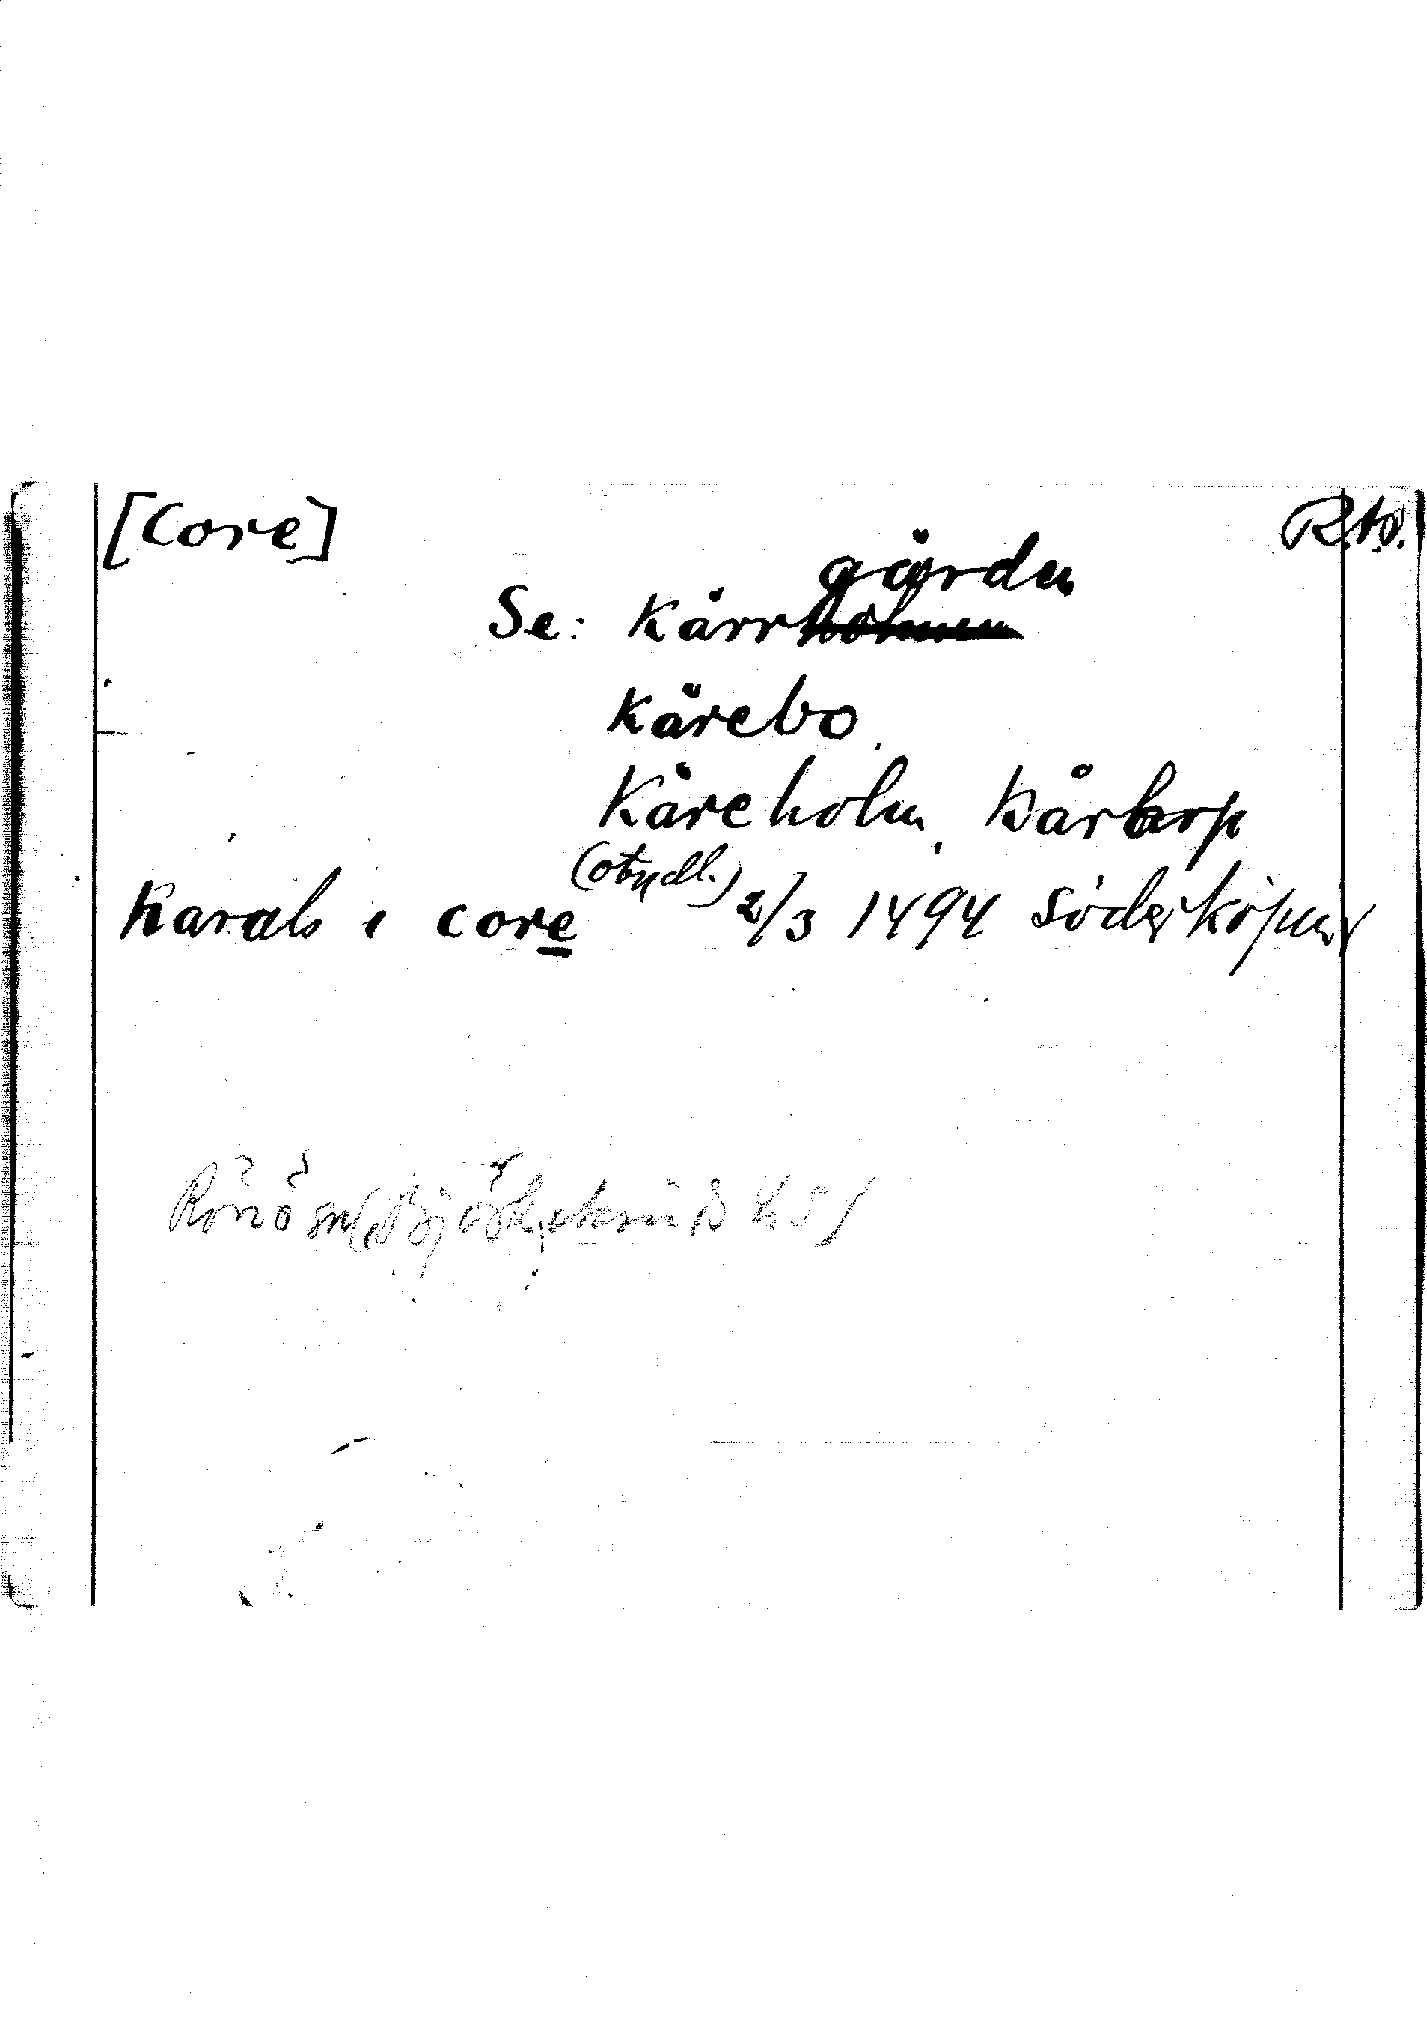 [Core]
Se: Kärrgården
Kärebo
Käreholm, Kårtorp
Karals i core (otydl.) 2/3 1494 Söderköping
Rönö sn